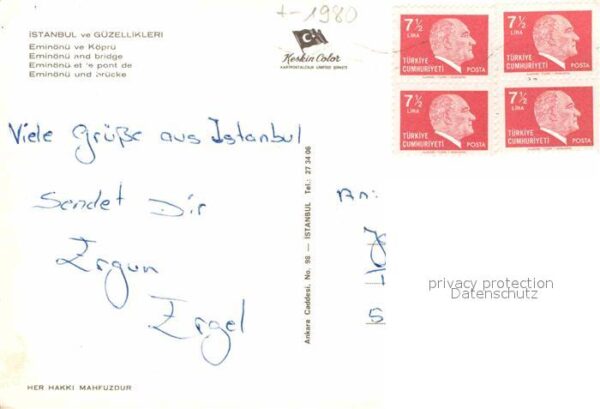 t-1980
İSTANBUL ve GÜZELLİKLERİ
Eminönü ve Köprü
Eminönü and bridge
Eminönü et le pont de
Eminönü und Brücke
Keskin Color
KARTPOSTALCILIK LİMİTED ŞİRKETİ
7½ LİRA TÜRKİYE CUMHURİYETİ POSTA
7½ LİRA TÜRKİYE CUMHURİYETİ POSTA
7½ LİRA TÜRKİYE CUMHURİYETİ POSTA
7½ LİRA TÜRKİYE CUMHURİYETİ POSTA
Viele Grüße aus Istanbul
Sendet Dir
Ergun
Ergel
Ankara Caddesi, No. 98 — İSTANBUL Tel.: 27 34 06
An:
5
privacy protection
Datenschutz
HER HAKKI MAHFUZDUR